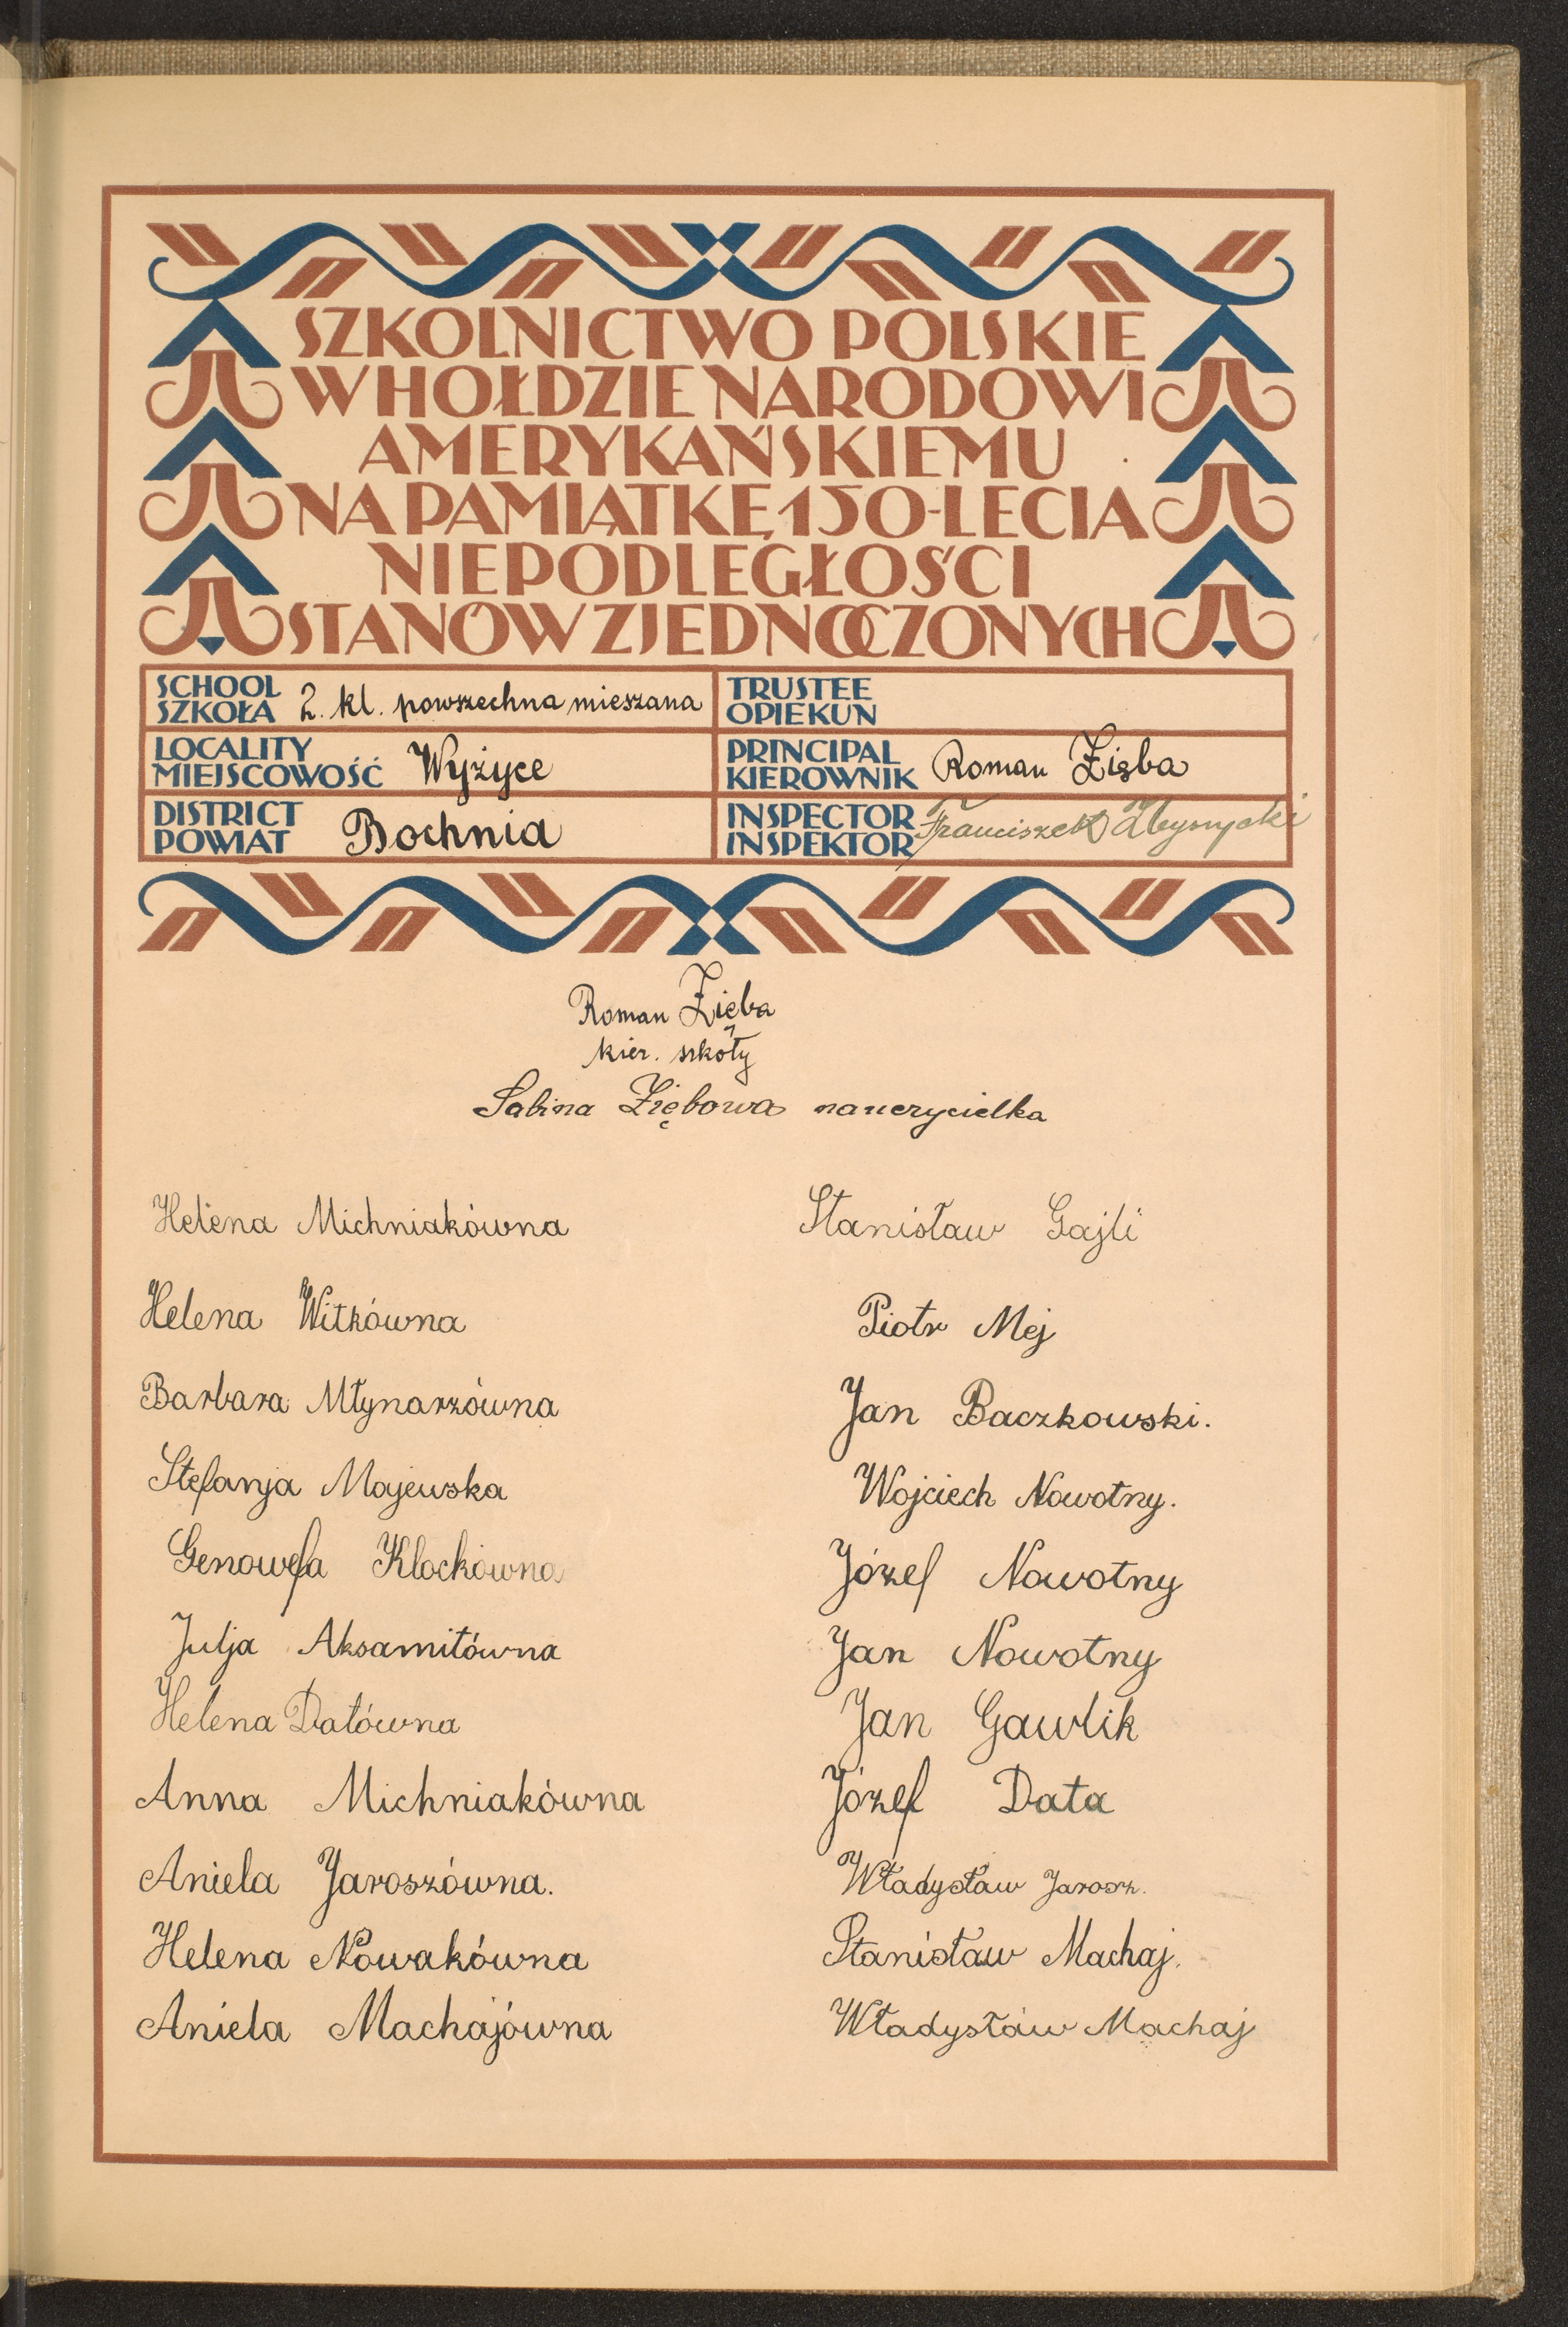 SZKOLNICTWO POLSKIE
W HOŁDZIE NARODOWI
AMERYKAŃSKIEMU
NA PAMIĄTKĘ 150-LECIA
NIEPODLEGŁOŚCI
STANÓW ZJEDNOCZONYCH
SCHOOL
SZKOŁA 2. kl. powszechna mieszana
TRUSTEE
OPIEKUN
LOCALITY
MIEJSCOWOŚĆ Wyżyce
PRINCIPAL
KIEROWNIK Roman Zięba
DISTRICT
POWIAT Bochnia
INSPECTOR
INSPEKTOR Franciszek
Roman Zięba
kier. szkoły
Sabina Ziębowa nauczycielka
Helena Michniakówna
Helena Witkówna
Barbara Młynarzówna
Stefanja Majewska
Genowefa Klockówna
Julja Aksamitówna
Helena Datówna
Anna Michniakówna
Aniela Jaroszówna.
Helena Nowakówna
Aniela Machajówna
Stanisław Gajli
Piotr Mej
Jan Baczkowski.
Wojciech Nowotny.
Józef Nowotny
Jan Nowotny
Jan Gawlik
Józef Data
Władysław Jarosz.
Stanisław Machaj.
Władysław Machaj